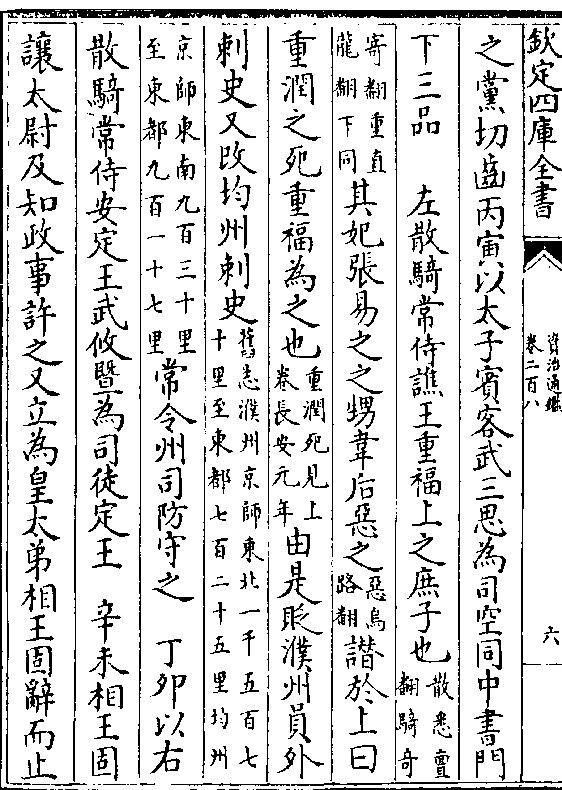 欽定四庫全書
資治通鑑
卷二百八
六
之黨切齒丙寅以太子賓客武三思為司空同中書門
下三品　左散騎常侍譙王重福上之庶子也散悉亶
翻騎奇
寄翻重直
龍翻下同其妃張易之之甥韋后惡之惡烏
路翻譖於上曰
重潤之死重福為之也重潤死見上
卷長安元年由是貶濮州員外
刺史又改均州刺史舊志濮州京師東北一千五百七
十里至東都七百二十五里均州
京師東南九百三十里
至東都九百一十七里常令州司防守之　丁卯以右
散騎常侍安定王武攸暨為司徒定王　辛未相王固
讓太尉及知政事許之又立為皇太弟相王固辭而止